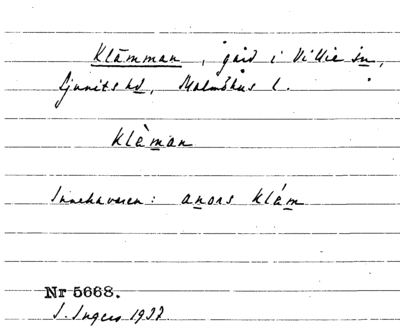 Klämman, gård i Villie sn,
Ljunits hd, Malmöhus l.
Klä̀man
Innehavaren: anors Klám
Nr 5668.
I. Ingers 1937